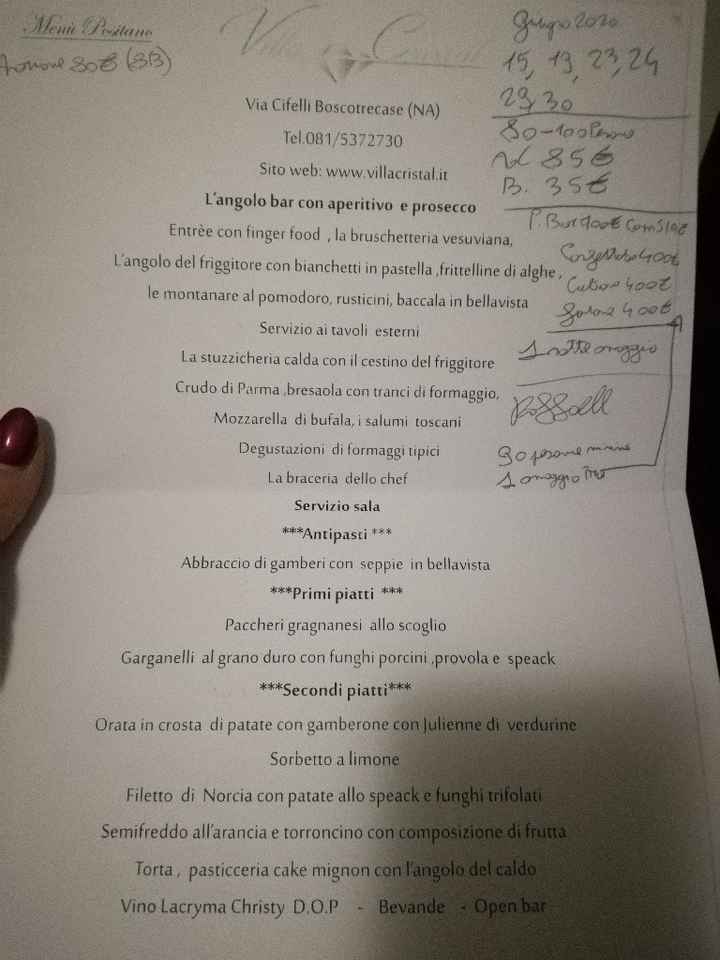 Menù Positano
Villa Cristal
80€ (8B)
Giugno 2020
15, 19, 23, 24
29, 30
80-100 Persone
Ad. 85€
B. 35€
Via Cifelli Boscotrecase (NA)
Tel.081/5372730
Sito web: www.villacristal.it
L'angolo bar con aperitivo e prosecco
Entrèe con finger food , la bruschetteria vesuviana,
L'angolo del friggitore con bianchetti in pastella ,frittelline di alghe ,
400€
400€
400€
le montanare al pomodoro, rusticini, baccala in bellavista
Servizio ai tavoli esterni
1 notte omaggio
La stuzzicheria calda con il cestino del friggitore
Crudo di Parma ,bresaola con tranci di formaggio,
Mozzarella di bufala, i salumi toscani
Degustazioni di formaggi tipici
90 persone minime
1 omaggio
La braceria dello chef
Servizio sala
***Antipasti ***
Abbraccio di gamberi con seppie in bellavista
***Primi piatti ***
Paccheri gragnanesi allo scoglio
Garganelli al grano duro con funghi porcini ,provola e speack
***Secondi piatti***
Orata in crosta di patate con gamberone con Julienne di verdurine
Sorbetto a limone
Filetto di Norcia con patate allo speack e funghi trifolati
Semifreddo all'arancia e torroncino con composizione di frutta
Torta , pasticceria cake mignon con l'angolo del caldo
Vino Lacryma Christy D.O.P - Bevande - Open bar